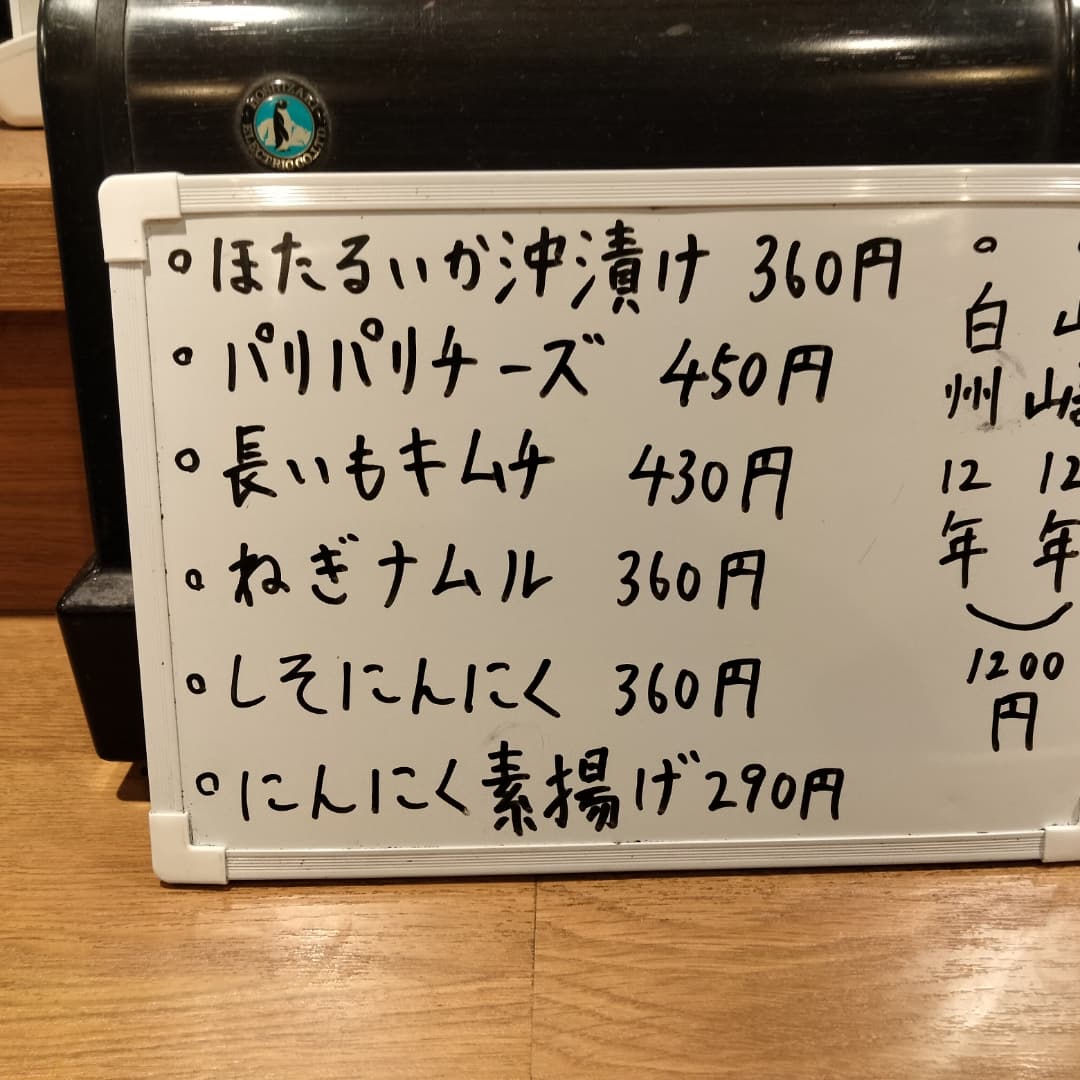 HOSHIZAKI ELECTRIC CO.,LTD.
ほたるいか沖漬け 360円
パリパリチーズ 450円
長いもキムチ 430円
ねぎナムル 360円
しそにんにく 360円
にんにく素揚げ 290円
山崎12年
白州12年
1200円